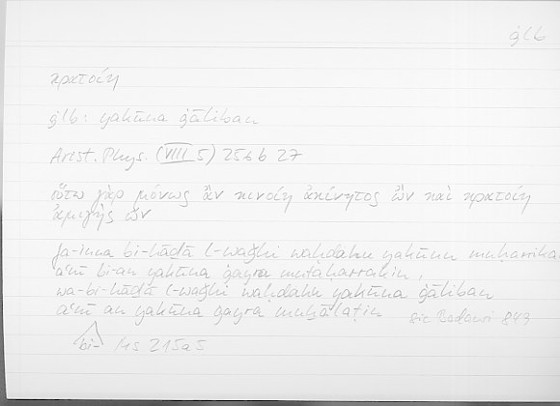 ġlb
κρατοίη
ġlb: yakūna ġāliban
Arist. Phys. (VIII 5) 256b 27
οὕτω γὰρ μόνως ἂν κινοίη ἀκίνητος ὢν καὶ κρατοίη
ἀμιγὴς ὤν
fa-inna bi-hāḏā l-waǧhi waḥdahu yakūnu muḥarrika
aʿnī bi-an yakūna ġayra mutaḥarrikin,
wa-bi-hāḏā l-waǧhi waḥdahu yakūna ġāliban
aʿnī an yakūna ġayra muḫālaṭin sic Badawi 843
bi- Ms 215a5